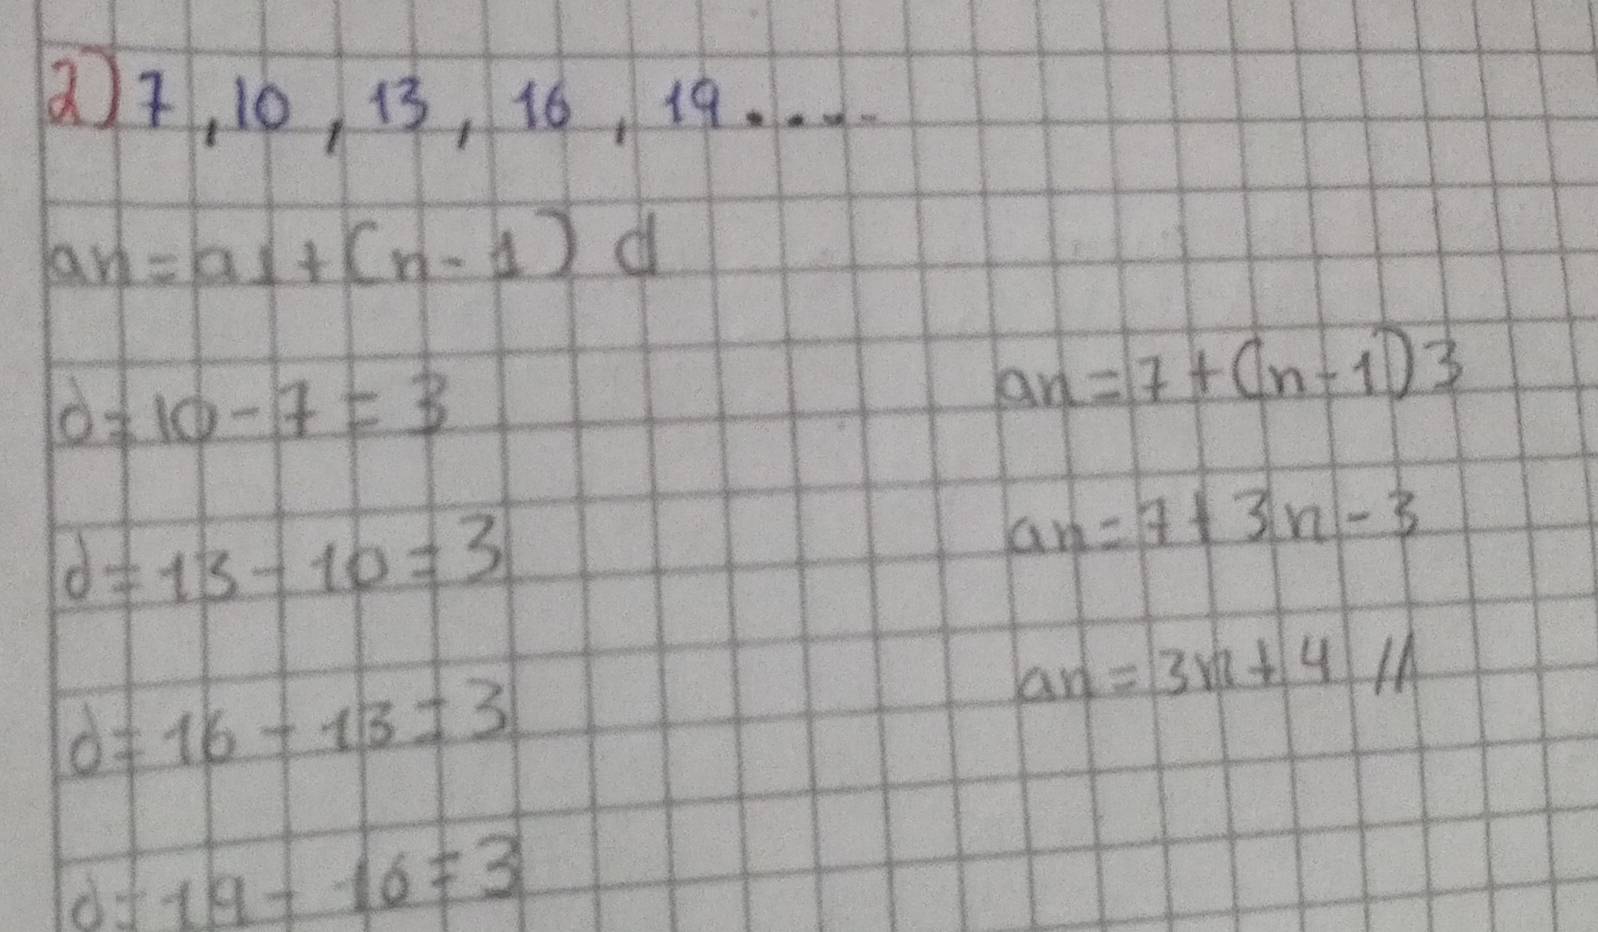 2) 7, 10, 13, 16, 19.....
an = a1 + (n - 1) d
d = 10 - 7 = 3
d = 13 - 10 = 3
d = 16 - 13 = 3
d = 19 - 16 = 3
an = 7 + (n - 1) 3
an = 7 + 3n - 3
an = 3n + 4 //